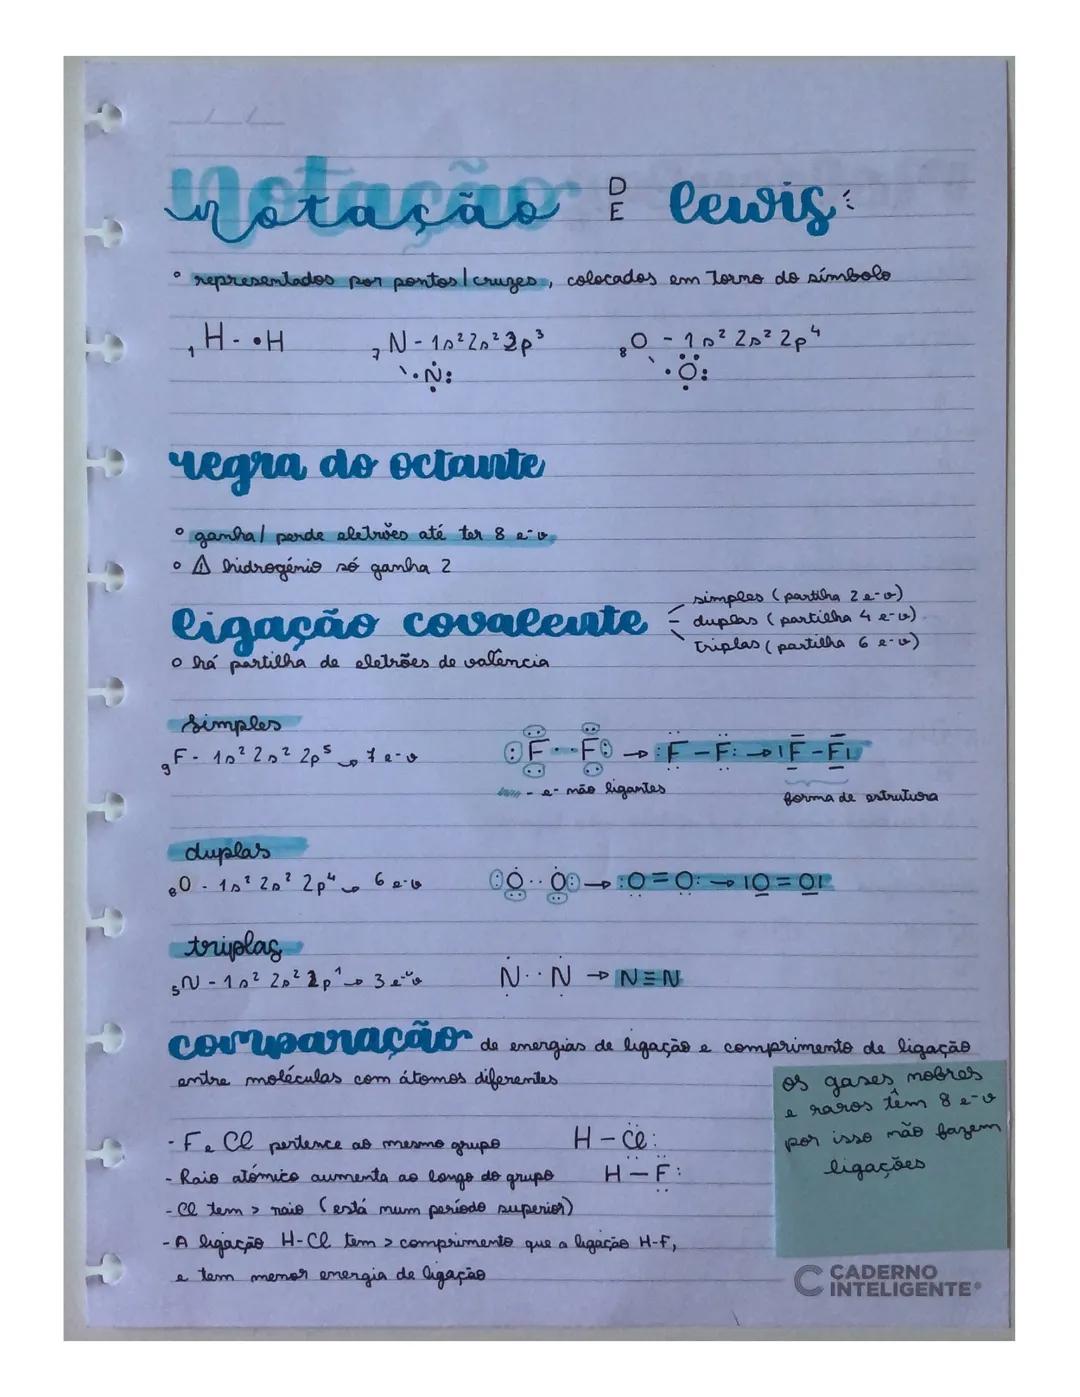 notação DE lewis:
° representados por pontos/cruzes, colocados em torno do símbolo
₁H - •H ₇N - 1s² 2s² 2p³ ₈O - 1s² 2s² 2p⁴
·N: ·O:
regra do octante
° ganha/perde eletrões até ter 8 e⁻v
° ⚠ hidrogénio só ganha 2
simples (partilha 2 e⁻v)
ligação covalente - duplas (partilha 4 e⁻v)
triplas (partilha 6 e⁻v)
° há partilha de eletrões de valência
simples
₉F - 1s² 2s² 2p⁵ → 7 e⁻v :F··F: → :F-F: → |F-F|
- e⁻ não ligantes forma de estrutura
duplas
₈O - 1s² 2s² 2p⁴ → 6 e⁻v :O··O: → :O=O: → |O=O|
triplas
₅N - 1s² 2s² 2p¹ → 3 e⁻v N··N → N≡N
comparação de energias de ligação e comprimento de ligação
entre moléculas com átomos diferentes
os gases nobres
e raros têm 8 e⁻v
por isso não fazem
ligações
- F e Cl pertence ao mesmo grupo H-Cl:
- Raio atómico aumenta ao longo do grupo H-F:
- Cl tem > raio (está num período superior)
- A ligação H-Cl tem > comprimento que a ligação H-F,
e tem menor energia de ligação
CADERNO
INTELIGENTE®